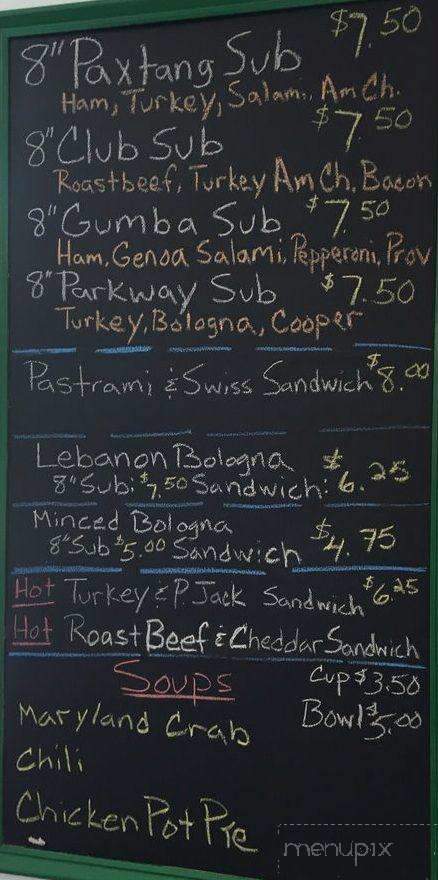 8" Paxtang Sub $7.50
Ham, Turkey, Salami, Am Ch.
8" Club Sub $7.50
Roastbeef, Turkey Am Ch, Bacon
8" Gumba Sub $7.50
Ham, Genoa Salami, Pepperoni, Prov
8" Parkway Sub $7.50
Turkey, Bologna, Cooper
Pastrami & Swiss Sandwich $8.00
Lebanon Bologna
8" Sub: $7.50 Sandwich: $6.25
Minced Bologna
8" Sub $5.00 Sandwich $4.75
Hot Turkey & P. Jack Sandwich $6.25
Hot Roast Beef & Cheddar Sandwich
Soups Cup $3.50
Bowl $5.00
Maryland Crab
Chili
Chicken Pot Pie
menupix